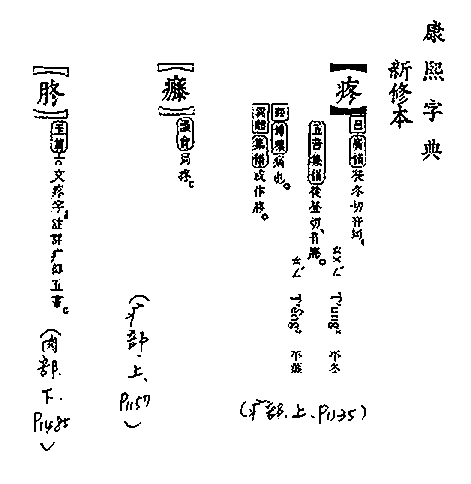 康熙字典
新修本
【疼】
徒冬切音彤。
ㄊㄨㄥˊ T'ung² 平冬
五音集韻徒登切音騰。
ㄊㄥˊ T'êng² 平蒸
博雅痛也。
集韻或作
(疒部.上.P1135)
同疼。
(疒部.上.P1157)
玉篇古文疼字註詳疒部五畫。
(肉部.下.P1485)